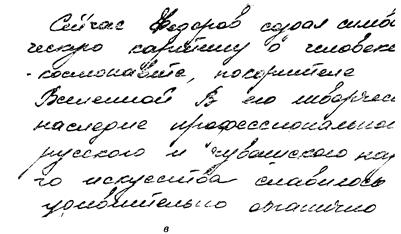 Сейчас Федоров создал симво
ческую картину о человеке
- космонавте, покорителе
Вселенной В его творчес
наследие профессионально
русского и чувашского на
го искусства славилось
удивительно органично
в